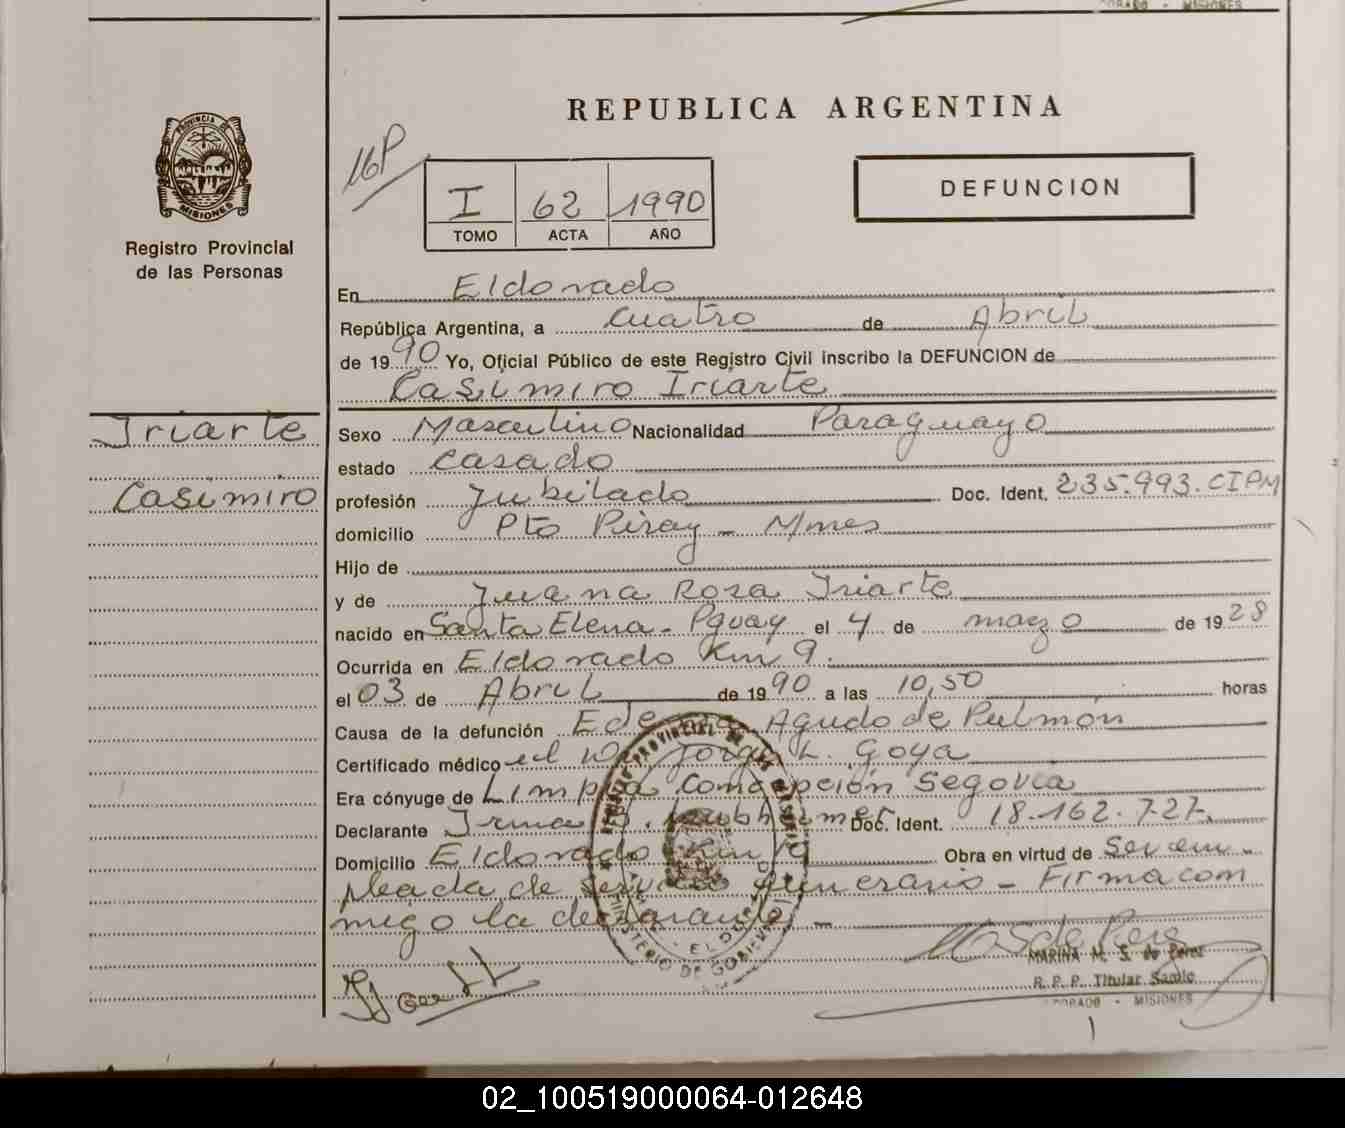 REPUBLICA ARGENTINA
PROVINCIA DE
MISIONES
Registro Provincial
de las Personas
I 62 1990
TOMO ACTA AÑO
DEFUNCION
En Eldorado
República Argentina, a cuatro de Abril
de 1990 Yo, Oficial Público de este Registro Civil inscribo la DEFUNCION de
Casimiro Iriarte
Iriarte
Casimiro
Sexo Masculino Nacionalidad Paraguayo
estado casado
profesión Jubilado Doc. Ident. 235.993.CIPM
domicilio Pto Piray - Mnes
Hijo de
y de Juana Rosa Iriarte
nacido en Santa Elena - Pguay el 4 de marzo de 1928
Ocurrida en Eldorado Km 9.
el 03 de Abril de 1990 a las 10,50 horas
Causa de la defunción Edema Agudo de Pulmón
Certificado médico el Dr Jorge L. Goya
Era cónyuge de Limpia Concepción Segovia
Declarante Irma Doc. Ident. 18.162.727.
Domicilio Eldorado Km 10 Obra en virtud de Ser em-
pleada de servicio funerario - Firma con
migo la declarante. -
MARINA M. S. de Perez
R. P. P. Titular Sanilc
DORADO - MISIONES
02_100519000064-012648